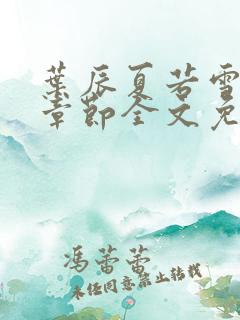 葉辰夏若雪
章節全文免
冯蕾蕾
未经同意禁止转载